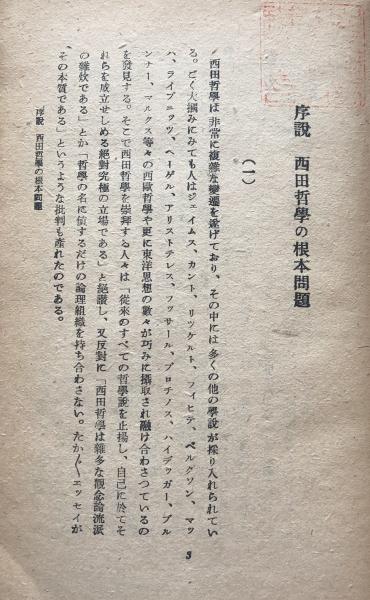 序說　西田哲學の根本問題
（一）
西田哲學は非常に複雜な變遷を遂げており、その中には多くの他の學說が採り入れられてい
る。ごく大摑みにみても人はジェイムス、カント、リッケルト、フイヒテ、ベルクソン、マッ
ハ、ライプニッツ、ヘーゲル、アリストテレス、フッサール、プロチノス、ハイデッガー、ブル
ンナー、マルクス等々の西歐哲學や更に東洋思想の數々が巧みに攝取され融け合わさつているの
を發見する。そこで西田哲學を崇拜する人々は「從來のすべての哲學說を止揚し、自己に於てそ
れらを成立せしめる絕對究極の立場である」と絕讃し、又反對に「西田哲學は雜多な觀念論流派
の雜炊である」とか「哲學の名に値するだけの論理組織を持ち合わさない。たか〴〵エッセイが
その本質である」というような批判も產れたのである。
序說　西田哲學の根本問題
3